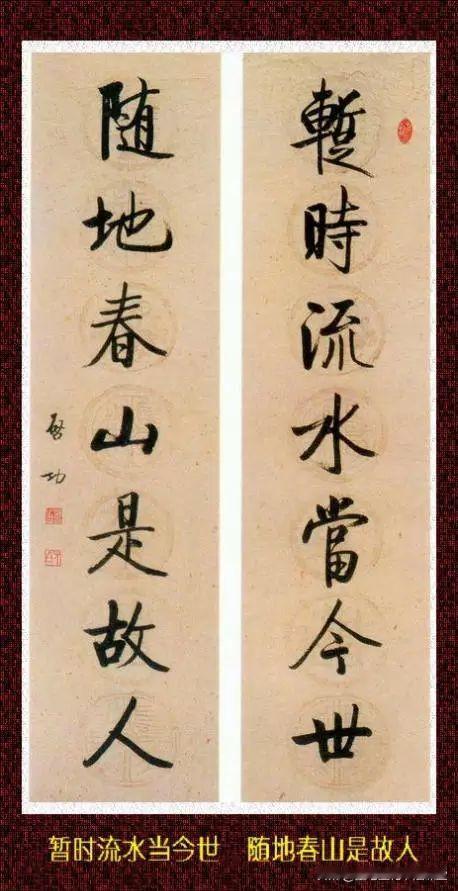 暫時流水當今世
随地春山是故人
啓功
暂时流水当今世 随地春山是故人